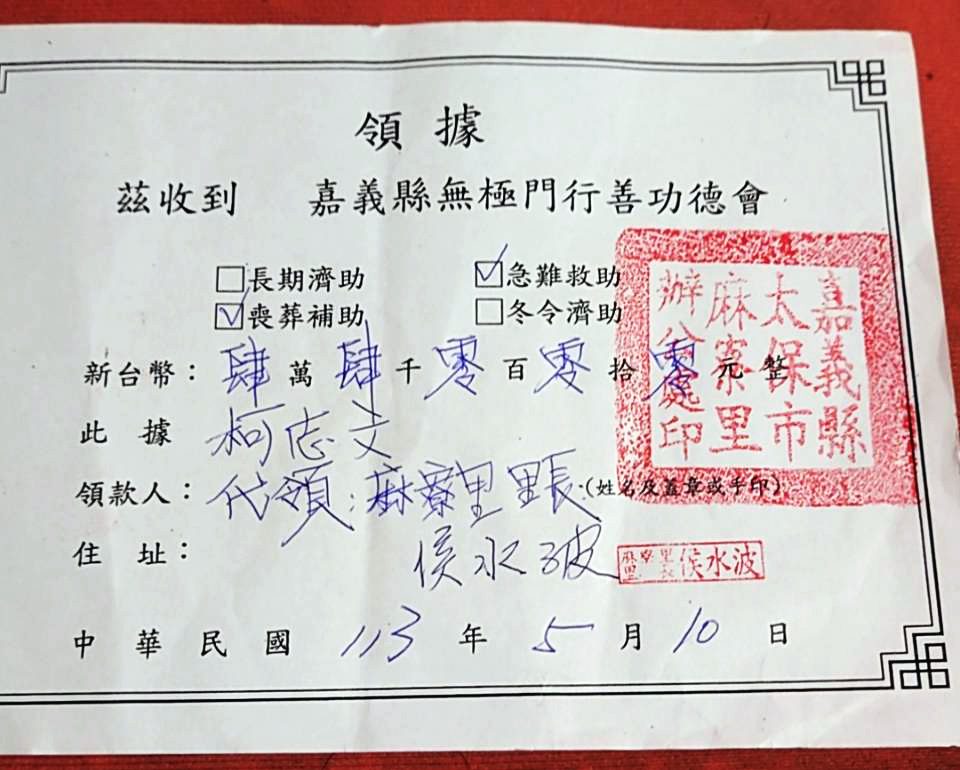 領據
茲收到 嘉義縣無極門行善功德會
□長期濟助 ☑急難救助
☑喪葬補助 □冬令濟助
新台幣：肆萬肆千零百零拾零元整
此據 柯志文
領款人：代領：麻寮里里長（姓名及蓋章或手印）
住址： 侯水波
中華民國 113 年 5 月 10 日
嘉義縣
太保市
麻寮里
辦公處印
麻寮里里長 侯水波